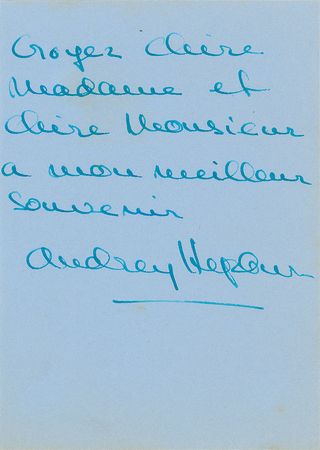 Croyez chère
Madame et
chère Monsieur
a mon meilleur
souvenir
Audrey Hepburn